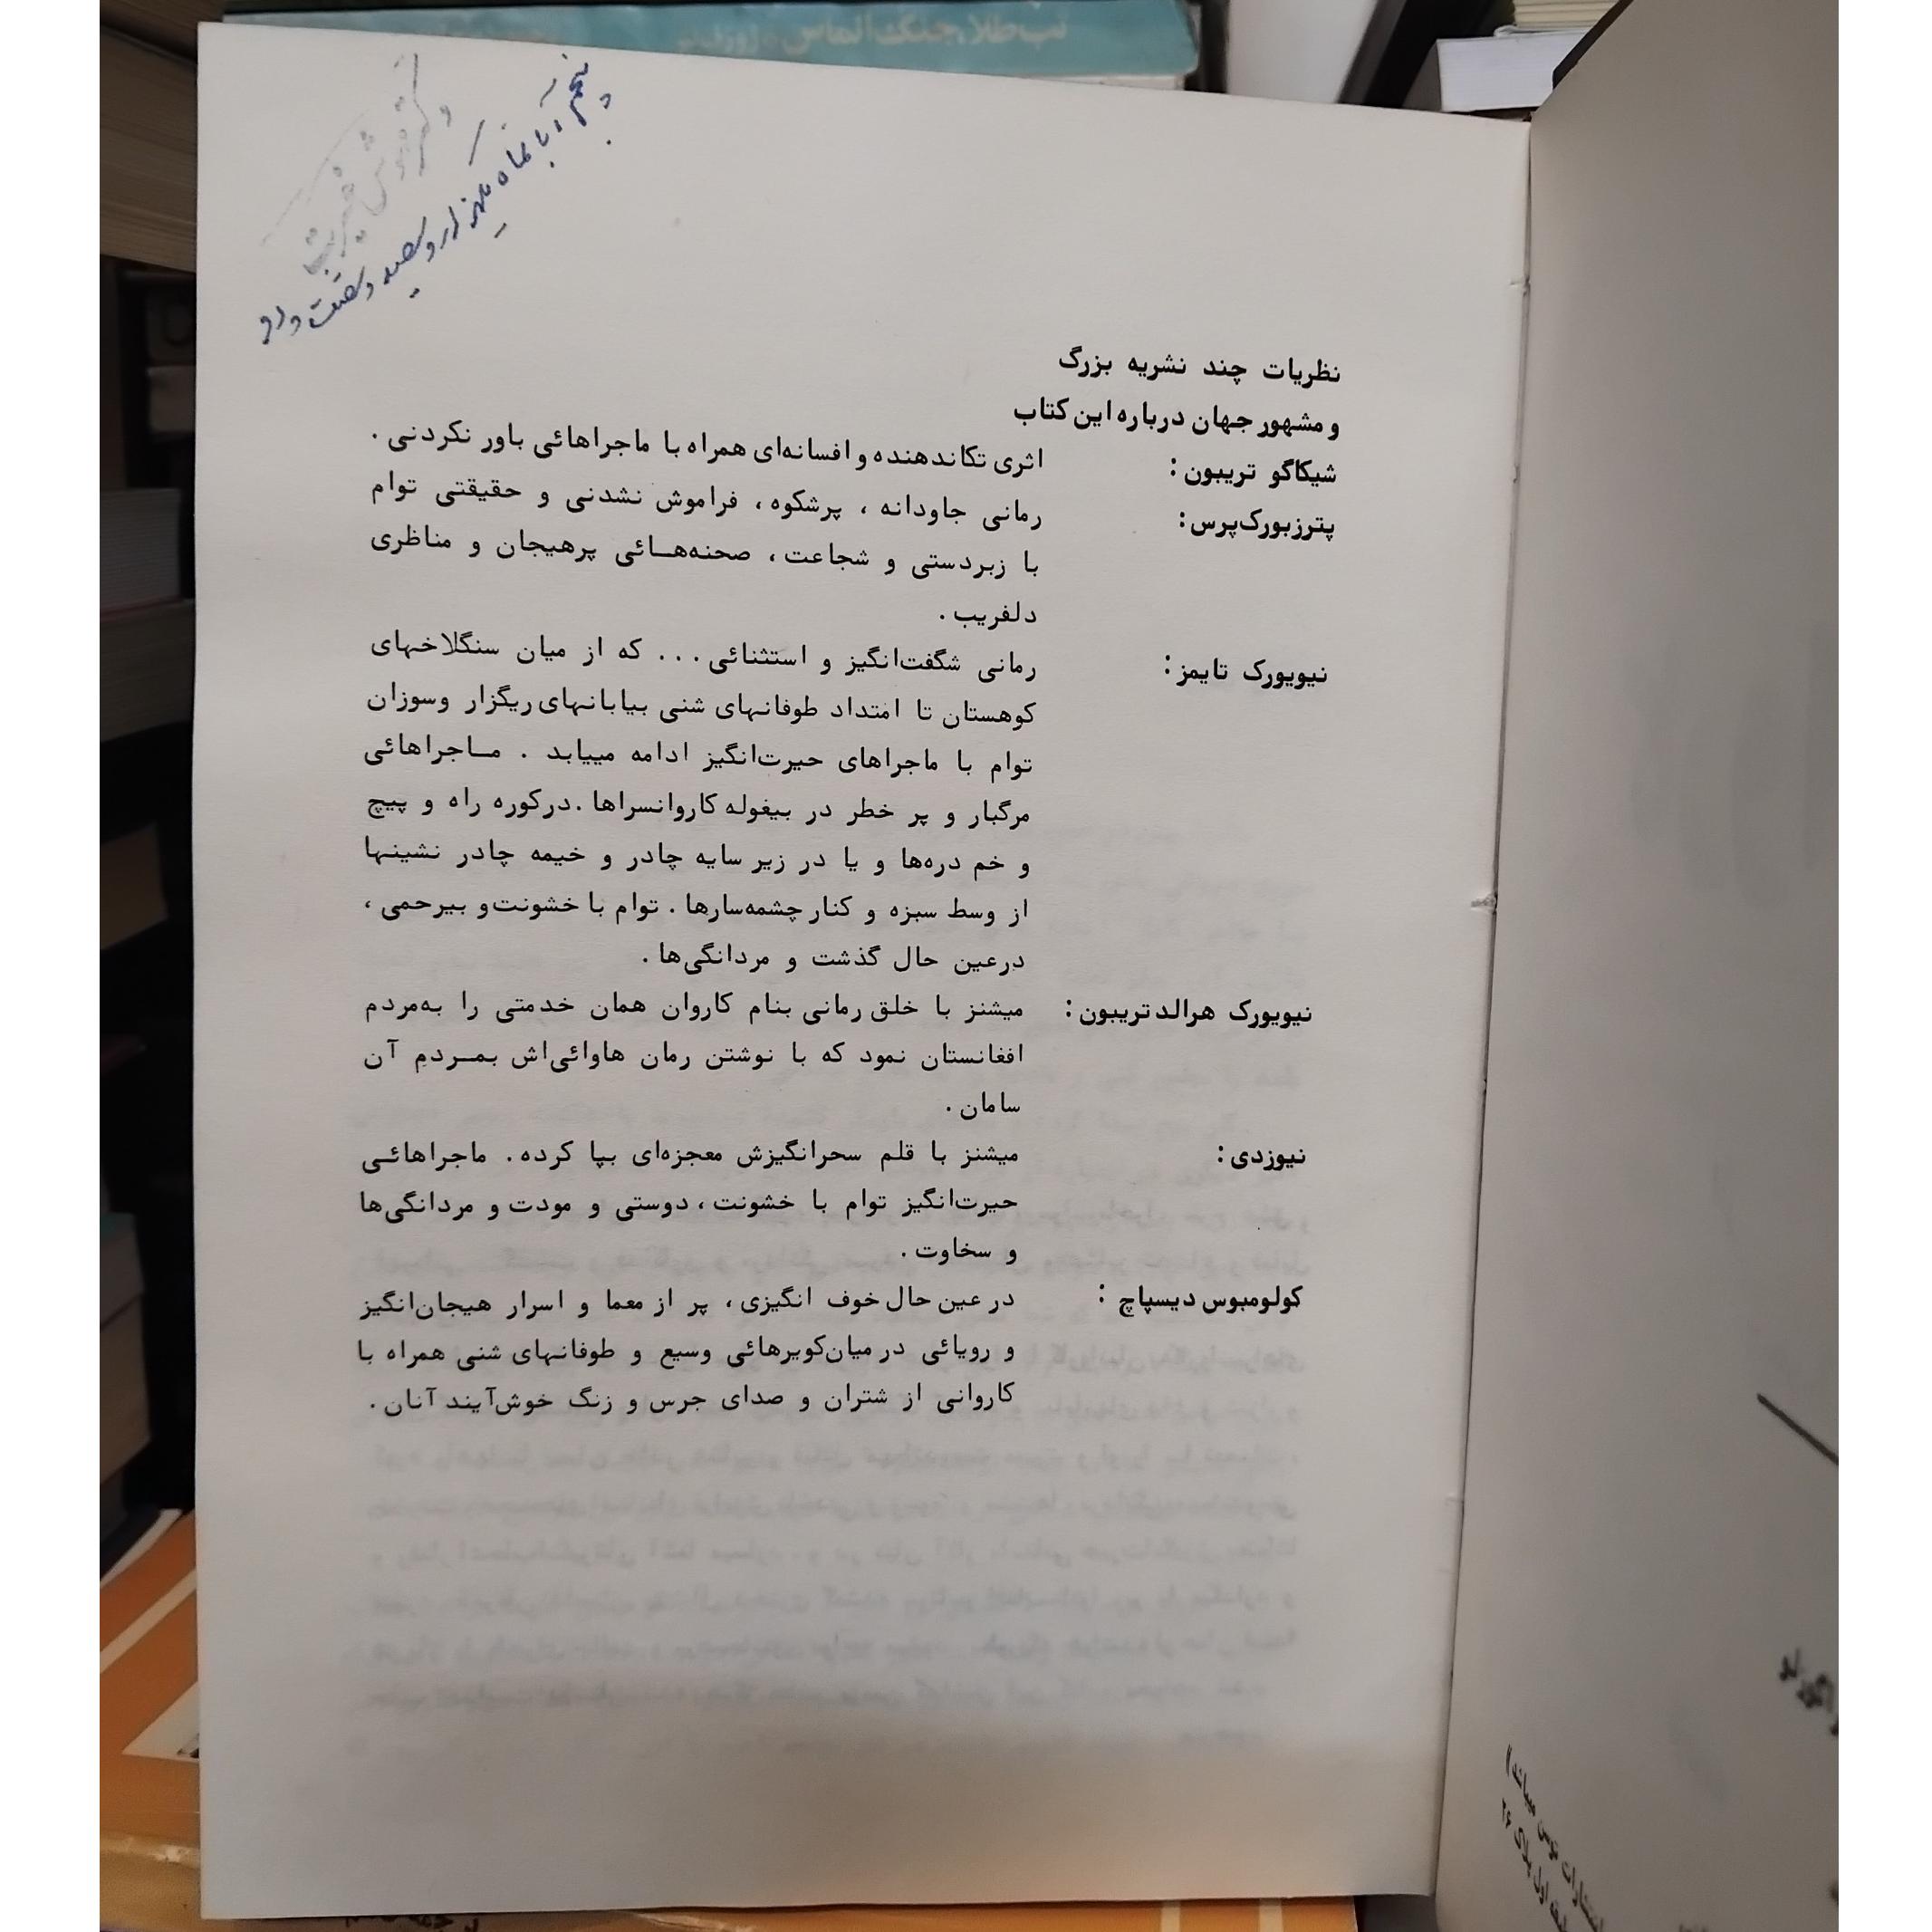 تب طلا، جنگ الماس
پنجم آبانماه یکهزار و سیصد و شصت و دو
نظریات چند نشریه بزرگ
و مشهور جهان درباره این کتاب
شیکاگو تریبون: اثری تکاندهنده و افسانه‌ای همراه با ماجراهائی باور نکردنی.
پترزبورک‌پرس: رمانی جاودانه، پرشکوه، فراموش نشدنی و حقیقتی توام
با زبردستی و شجاعت، صحنه‌هــائی پرهیجان و مناظری
دلفریب.
نیویورک تایمز: رمانی شگفت‌انگیز و استثنائی... که از میان سنگلاخهای
کوهستان تا امتداد طوفانهای شنی بیابانهای ریگزار وسوزان
توام با ماجراهای حیرت‌انگیز ادامه مییابد. مــاجراهائی
مرگبار و پر خطر در بیغوله کاروانسراها. درکوره راه و پیچ
و خم دره‌ها و یا در زیر سایه چادر و خیمه چادر نشینها
از وسط سبزه و کنار چشمه‌سارها. توام با خشونت و بیرحمی،
درعین حال گذشت و مردانگی‌ها.
نیویورک هرالد تریبون: میشنز با خلق رمانی بنام کاروان همان خدمتی را به‌مردم
افغانستان نمود که با نوشتن رمان هاوائی‌اش بمــردم آن
سامان.
نیوزدی: میشنز با قلم سحرانگیزش معجزه‌ای بپا کرده. ماجراهائـی
حیرت‌انگیز توام با خشونت، دوستی و مودت و مردانگی‌ها
و سخاوت.
کولومبوس دیسپاچ: در عین حال خوف انگیزی، پر از معما و اسرار هیجان‌انگیز
و رویائی در میان‌کویرهائی وسیع و طوفانهای شنی همراه با
کاروانی از شتران و صدای جرس و زنگ خوش‌آیند آنان.